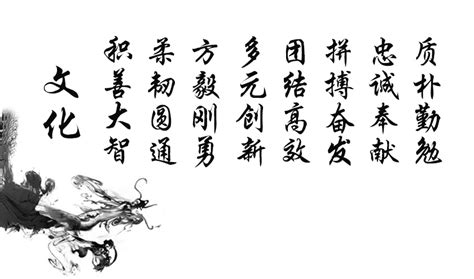 文化
积善大智
柔韧圆通
方毅刚勇
多元创新
团结高效
拼搏奋发
忠诚奉献
质朴勤勉